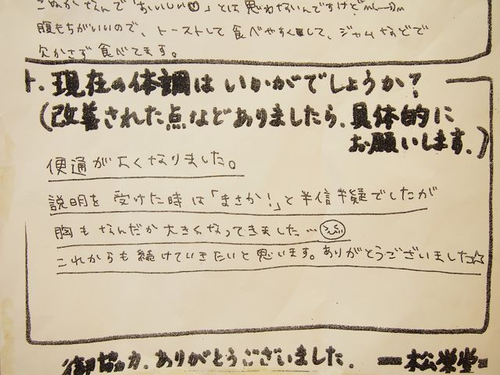 こぬかなんで「おいしい」とは思わないんですけどm(__)m
腹もちがいいので、トーストして食べやすくして、ジャムなどで
欠かさず食べてます。
ト. 現在の体調はいかがでしょうか?
(改善された点などありましたら、具体的に
お願いします。)
便通が太くなりました。
説明を受けた時は「まさか!」と半信半疑でしたが
胸もなんだか大きくなってきました…
これからも続けていきたいと思います。ありがとうございました☆
御協力、ありがとうございました。 ー松栄堂ー